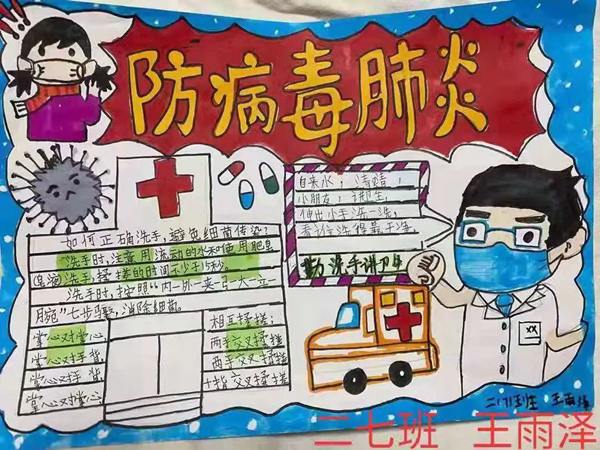 防病毒肺炎
自来水；清清；
小朋友；讲卫生，
伸出小手洗一洗，
看谁洗得最干净。
勤洗手讲卫生
如何正确洗手，避免细菌传染；
洗手时，注意用流动的水和使用肥皂
（液）洗手，揉搓的时间不少于15秒。
洗手时，按照“内-外-夹-弓-大-立-
腕”七步骤，消除细菌。
掌心对掌心，
掌心对手背，
掌心对手背，
掌心对掌心，
相互揉搓；
两手交叉揉搓
两手交叉揉搓
十指交叉揉搓
XX
王雨泽
二七班 王雨泽